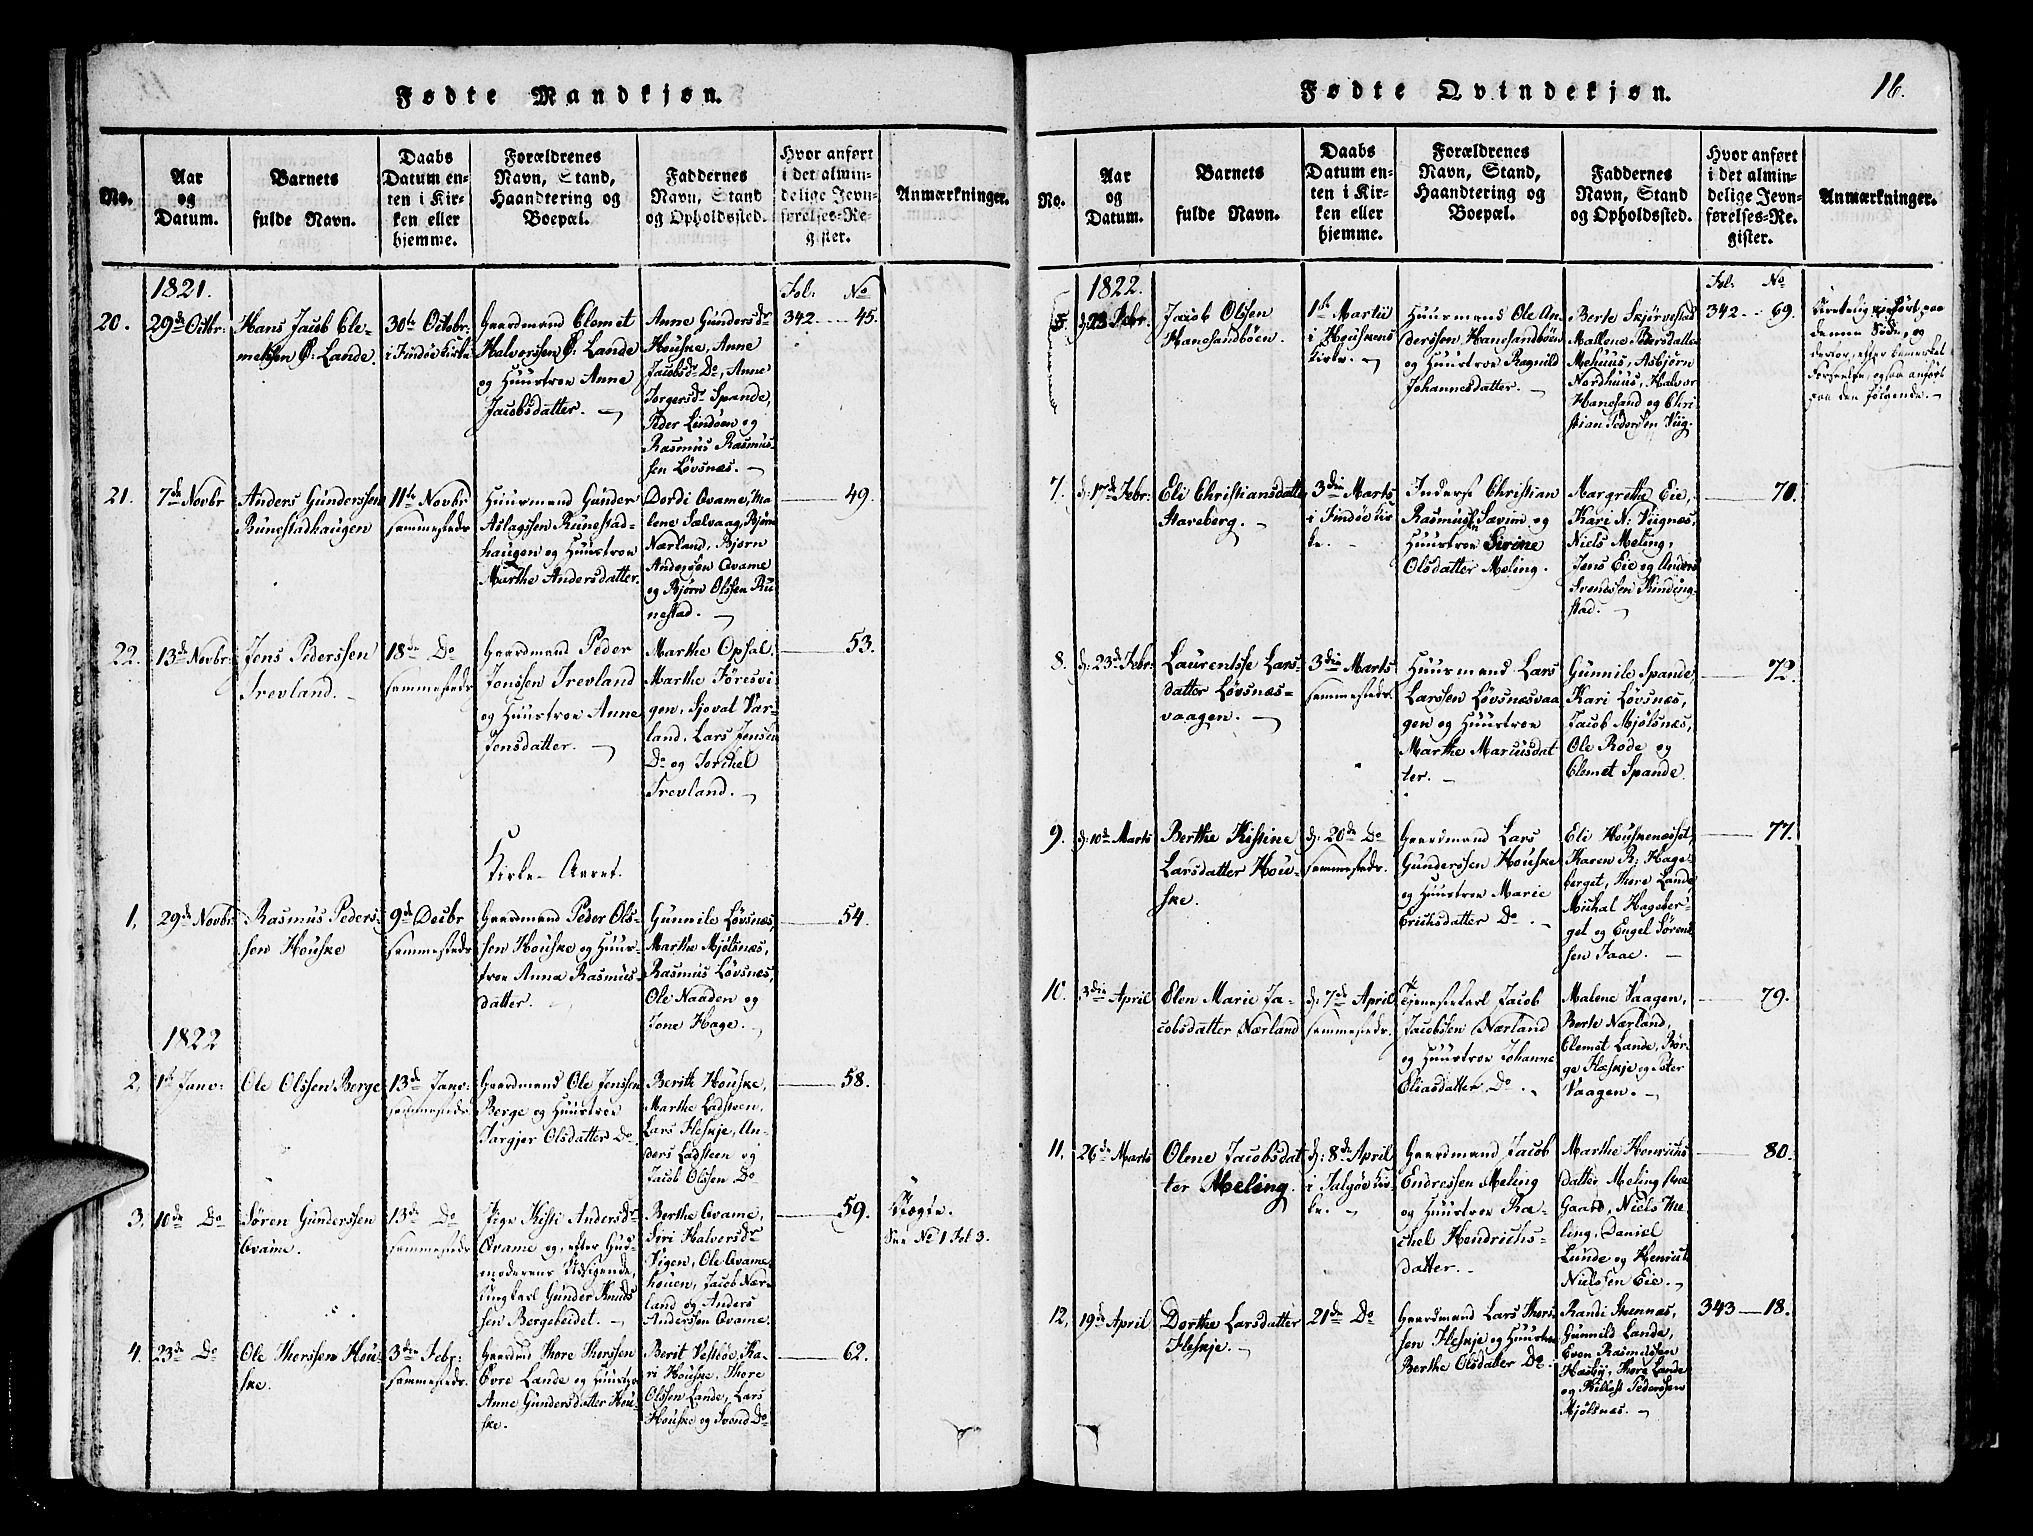 Fødte Mandkjøn.
No.
Aar
og
Datum.
Barnets
fulde Navn.
Daabs
Datum en-
ten i Kir-
ken eller
hjemme.
Forældrenes
Navn, Stand,
Haandtering og
Boepæl.
Faddernes
Navn, Stand
og Opholdssted.
Hvor anført
i det almin-
delige Jevn-
førelses-Re-
gister.
Anmærkninger.
1821.
Fol: No
20.
29de Octbr:
Hans Jacob Cle-
metsen Ø: Lande.
30te Octobr:
i Findøe Kirke
Gaardmand Clemet
Halvorssen Ø: Lande
og Huustroe Anne
Jacobsdatter.
Anne Gundersdr
Houske, Anne
Jacobsdr Do, Anne
Torgersdr Spande,
Peder Lindøen og
Rasmus Rasmus-
sen Løvsnæs.
342 45.
21.
7de Novbr
Anders Gunderssen
Runestadhaugen
11te Novbr
sammesteds
Huusmand Gunder
Aslagssen Runestad-
haugen og Huustroe
Marthe Andersdatter.
Dordi Qvame, Ma-
lene Sælvaag, Bjørn
Nærland, Bjørn
Anderssen Qvame
og Bjørn Olssen Ru-
nestad.
49.
22.
13de Novbr:
Jens Pederssen
Trevland.
18de Do
sammesteds
Gaardmand Peder
Jenssen Trevland
og Huustroe Anne
Jensdatter.
Marthe Opsal,
Marthe Føresvi-
gen, Sjovat Vær-
land, Lars Jensen
Do og Torchel
Trevland.
53.
Kirke-Aaret.
1.
29de Novbr:
Rasmus Peders-
sen Houske
9de Decbr
sammesteds
Gaardmand Peder Ols-
sen Houske og Huus-
troe Anna Rasmus-
datter.
Gunnile Løvsnæs,
Marthe Mjølsnæs,
Rasmus Løvsnæs,
Ole Naaden og
Tone Hage.
54.
1822
2.
1te Janv:
Ole Olssen Berge
13de Janv:
sammesteds
Gaardmand Ole Jenssen
Berge og Huustroe
Targjer Olsdatter Do.
Berith Houske,
Marthe Ladsteen,
Lars Fleskje, An-
ders Ladsteen og
Jacob Olssen Do
58.
3.
10de Do
Søren Gunderssen
Qvame.
13de Do
sammesteds
Pige Kisti Andersdr
Qvame og, efter Gud-
moderens Udsigende,
Ungkarl Gunder Knuds
sen Bergeheidet.
Berthe Qvame,
Siri Halversdr
Vigen, Ole Qvame,
houen, Jacob Nær-
land og Anders
Anderssen Qvame.
59.
Uægte.
See No 1 Fol 3.
4.
23de Do
Ole Thorssen Hou-
ske.
3die Febr:
sammesteds.
Gaardmd Thore Thorssen
Evre Lande og Huustroe
Anne Gundersdatter Hou-
ske.
Berit Vestbøe, Ka-
ri Houske, Thore
Olssen Lande, Lars
Houske og Svend Do
62.
Fødte Qvindekjøn.
16.
No.
Aar
og
Datum.
Barnets
fulde Navn.
Daabs
Datum en-
ten i Kir-
ken eller
hjemme.
Forældrenes
Navn, Stand,
Haandtering og
Boepæl.
Faddernes
Navn, Stand
og Opholdssted.
Hvor anført
i det almin-
delige Jevn-
førelses-Re-
gister.
Anmærkninger.
1822.
Fol. No
Febr:
Jacob Olssen
Hanesandbøen.
1te Martii
i Houskens
Kirke.
Huusmand Ole An-
derssen Hanesandbøen
og Huustroe Ragnild
Johannesdatter.
Berte Skjørvestad
Mallene Pedersdatter
Mehuus, Asbjørn
Nordhuus, Halvor
Hanesand og Chri-
stian Pedersen Viig.
342 69.
Urettelig indført paa
denne Side, og
derfor, efter bemærket
Forseelse, ogsaa anført
paa den følgende.
7.
d: 17de Febr:
Eli Christiansdatter
Stareberg.
3die Marts
i Findøe Kir-
ke.
Inderst Christian
Rasmussen Sævim og
Huustroe Sirine
Olsdatter Meling.
Margrethe Eie,
Kari N: Viignæs,
Niels Meling,
Jens Eie og Anders
Svendsen Kindeng-
stad.
70.
8.
d: 23de Febr:
Laurentsse Lars-
datter Løvsnæs-
vaagen.
3die Marts
sammesteds.
Huusmand Lars
Larssen Løvsnæsvaa-
gen og Huustroe
Marthe Marcusdat-
ter.
Gunnile Spande,
Kari Løvsnæs,
Jacob Mjølsnæs,
Ole Rode og
Clemet Spande.
72.
9.
d: 10de Marts
Berthe Kistine
Larsdatter Hou-
ske.
d: 20de Do
sammesteds.
Gaardmand Lars
Gunderssen Houske
og Huustroe Marie
Erichsdatter Do.
Eli Houskenæsset,
Karen R: Hage-
berget, Thore Lande
Michal Hageber-
get og Engel Søren-
sen Faae.
77.
10.
3die April
Elen Marie Ja-
cobsdatter Nærland
d: 7de April
sammesteds.
Tjenestekarl Jacob
Jacobssen Nærland
og Huustroe Johanne
Eliasdatter Do.
Malene Vaagen,
Berte Nærland,
Clemet Lande, Bør-
ge Fleskje og Peter
Vaagen.
79.
11.
26de Marts
Olene Jacobsdat-
ter Meling.
d: 8de April
i Talgøe Kir-
ke.
Gaardmand Jacob
Endressen Meling
og Huustroe Ra-
chel Hendrichs-
datter.
Marthe Henrichs
datter Meling
Gaard, Niels Me-
ling, Daniel
Lunde og Henrich
Nielssen Eie.
80.
12.
19de April
Dorthe Larsdatter
Fleskje.
21de Do
Gaardmand Lars Thors-
sen Fleskje og Huustroe
Berthe Olsdatter Do.
Randi Steennæs,
Gunnild Lande,
Even Rasmussen
Hæsbÿ, Thore Lande
og Pederssen
Mjølsnæs.
343 18.